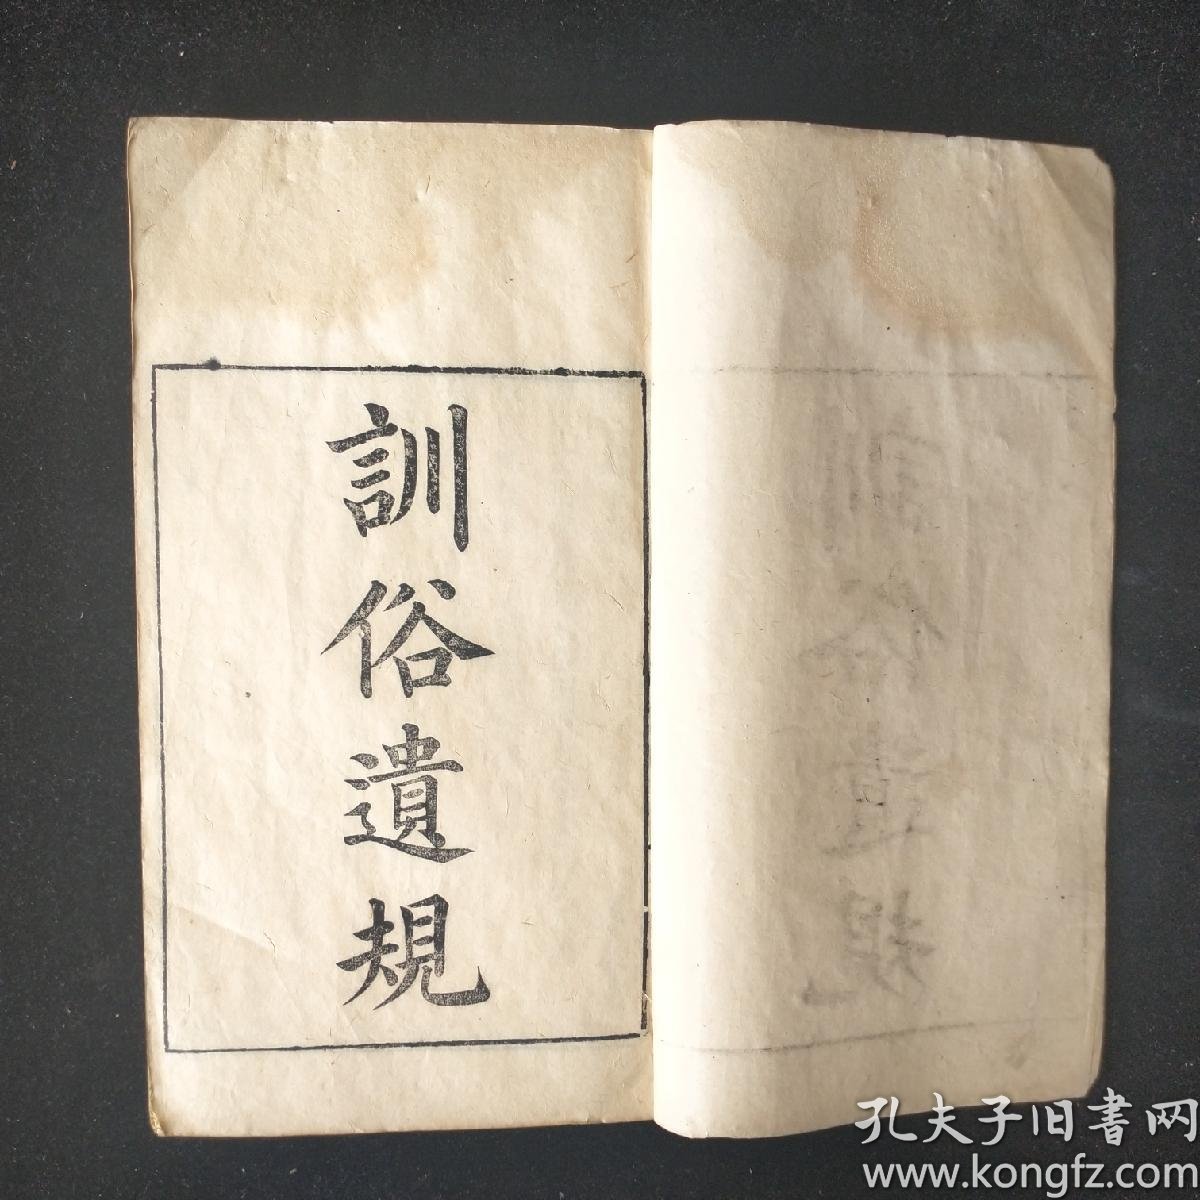 訓俗遺規
孔夫子旧書网
www.kongfz.com